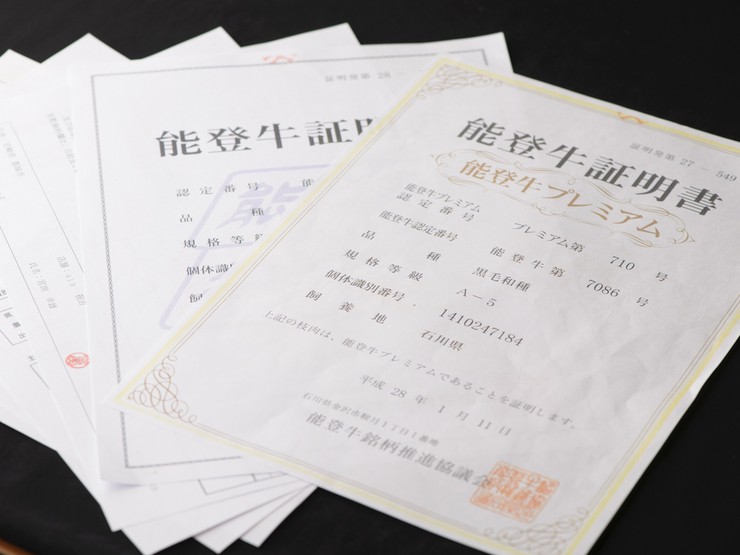 証明発第 27 － 549
能登牛証明書
能登牛プレミアム
能登牛プレミアム
認定番号 プレミアム第 710 号
能登牛認定番号 能登牛第 7086 号
品種 黒毛和種
規格等級 A－5
個体識別番号 1410247184
飼養地 石川県
上記の枝肉は、能登牛プレミアムであることを証明します。
平成 28 年 1 月 11 日
能登牛銘柄推進協議会
証明発第 28
能登牛証明
認定番号 能
品種
規格等級
個体識
飼